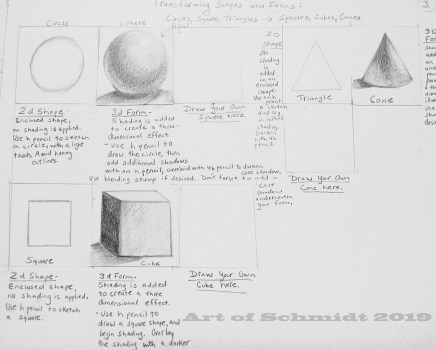 Transforming Shapes into Forms:
Circles, Square, Triangles → Spheres, Cubes, Cones.
3
Circle
Sphere
2D
Shape
No
shading is
added in
an
enclosed
shape.
Use h pencil
to sketch
Triangle
Cone
2d Shape-
Enclosed shape,
no shading is applied.
Use h pencil to sketch
in circle, with a light
touch. Avoid heavy
outlines.
3d Form-
Shading is added
to create a three
dimensional effect
- Use h pencil to
draw the circle, then
add additional shadows
with an h pencil, overlaid with 4b pencil to darken
Use blending stump if desired. Don't forget to add
cast
shadow
underneath
your form.
Draw Your Own
Sphere here.
Draw Your Own
Cone here.
Square
Cube
2d Shape-
Enclosed shape,
no shading is applied.
Use h pencil to sketch
a square.
3d Form-
Shading is added
to create a three
dimensional effect.
- Use h pencil to
draw a square shape, and
begin shading. Overlay
the shading with a darker
Draw Your Own
Cube here.
Art of Schmidt 2019